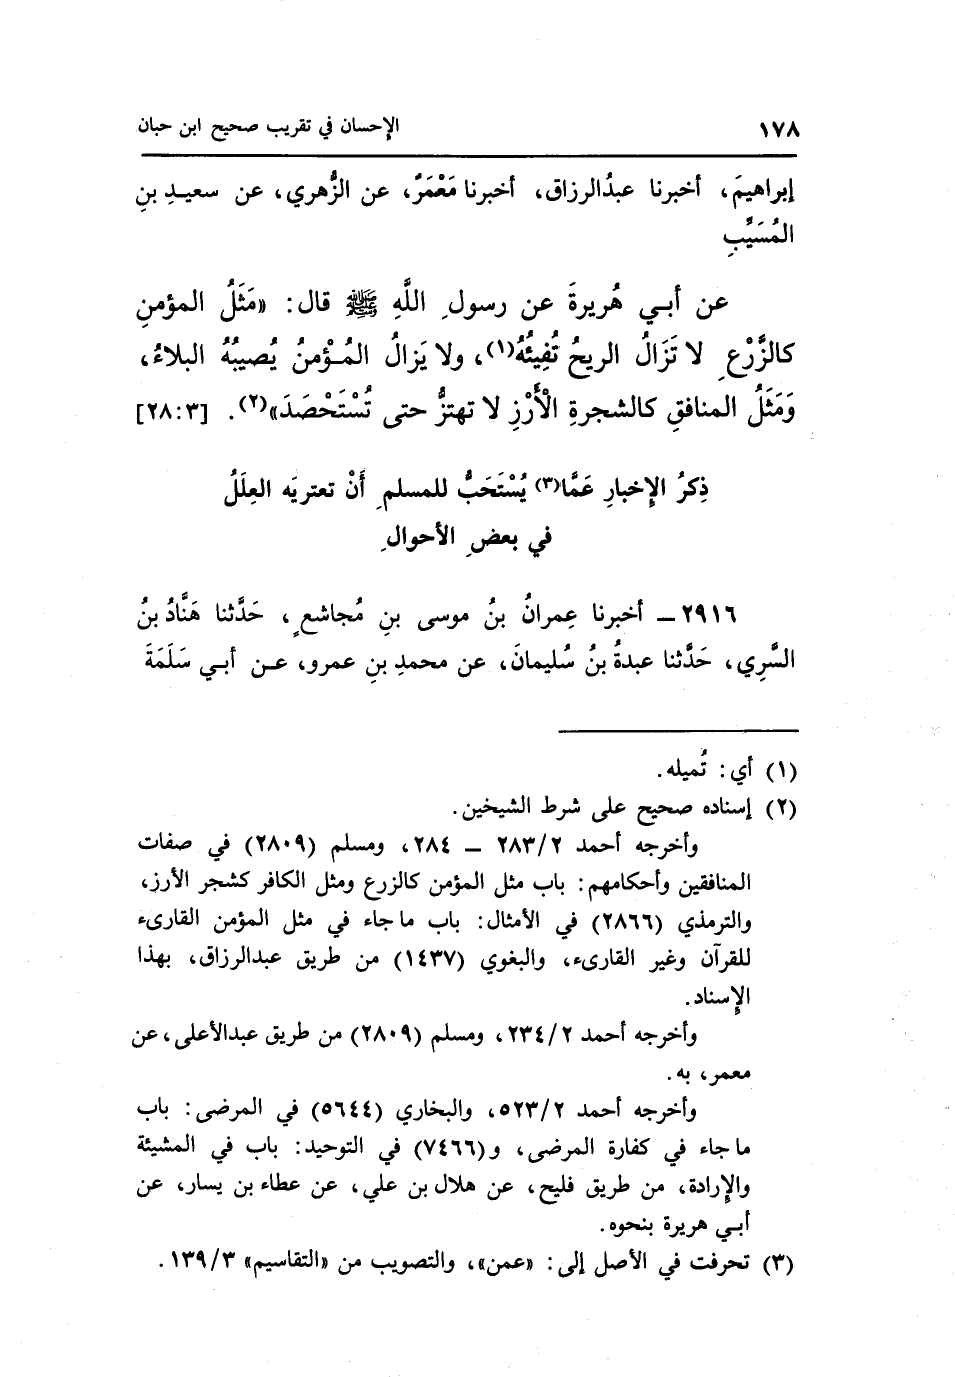 ١٧٨ الإحسان في تقريب صحيح ابن حبان
إبراهيمَ، أخبرنا عبدُالرزاق، أخبرنا مَعْمَرٌ، عن الزُّهري، عن سعيـدِ بنِ
المُسَيَّبِ
عن أبـي هُريرةَ عن رسولِ اللَّهِ ﷺ قال: «مَثَلُ المؤمنِ
كالزَّرْعِ لا تَزَالُ الريحُ تُفِيئُهُ(١)، ولا يَزالُ المُـؤْمنُ يُصيبُهُ البلاءُ،
وَمَثَلُ المنافقِ كالشجرةِ الْأَرْزِ لا تهتزُّ حتى تُسْتَحْصَدَ»(٢). [٢٨:٣]
ذِكرُ الإخبارِ عَمَّا(٣) يُسْتَحَبُّ للمسلمِ أَنْ تعتريَه العِلَلُ
في بعضِ الأحوالِ
٢٩١٦ ـ أخبرنا عِمرانُ بنُ موسى بنِ مُجاشعٍ، حَدَّثنا هَنَّادُ بنُ
السَّرِي، حَدَّثنا عبدةُ بنُ سُليمانَ، عن محمدِ بنِ عمرو، عـن أبـي سَلَمَةَ
(١) أي: تُميله.
(٢) إسناده صحيح على شرط الشيخين.
وأخرجه أحمد ٢/٢٨٣ ـ ٢٨٤، ومسلم (٢٨٠٩) في صفات
المنافقين وأحكامهم: باب مثل المؤمن كالزرع ومثل الكافر كشجر الأرز،
والترمذي (٢٨٦٦) في الأمثال: باب ما جاء في مثل المؤمن القارىء
للقرآن وغير القارىء، والبغوي (١٤٣٧) من طريق عبدالرزاق، بهذا
الإسناد.
وأخرجه أحمد ٢/٢٣٤، ومسلم (٢٨٠٩) من طريق عبدالأعلى، عن
معمر، به.
وأخرجه أحمد ٢/٥٢٣، والبخاري (٥٦٤٤) في المرضى: باب
ما جاء في كفارة المرضى، و(٧٤٦٦) في التوحيد: باب في المشيئة
والإرادة، من طريق فليح، عن هلال بن علي، عن عطاء بن يسار، عن
أبـي هريرة بنحوه.
(٣) تحرفت في الأصل إلى: «عمن»، والتصويب من «التقاسيم» ٣/١٣٩.